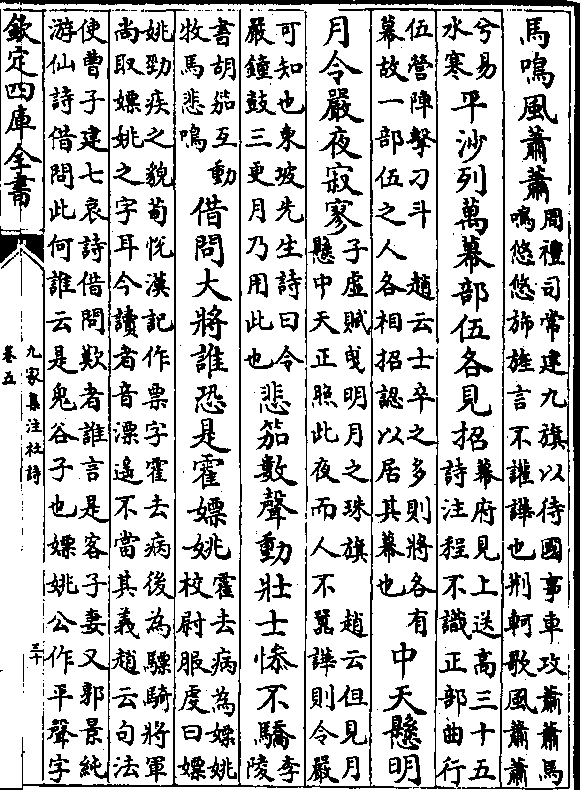 馬鳴風蕭蕭周禮司常建九旗以待國事車攻蕭蕭馬鳴悠悠旆旌言不讙譁也荆軻歌風蕭蕭
兮易水寒平沙列萬幕部伍各見招幕府見上送高三十五詩注程不識正部曲行
伍營陣擊刁斗 趙云士卒之多則將各有幕故一部伍之人各相招認以居其幕也中天懸明
月令嚴夜寂寥子虛賦曳明月之珠旗 趙云但見月懸中天正照此夜而人不囂譁則令嚴
可知也東坡先生詩曰令嚴鐘鼓三更月乃用此也悲笳數聲動壯士慘不驕李陵
書胡笳互動牧馬悲鳴借問大將誰恐是霍嫖姚霍去病為嫖姚校尉服虔曰嫖
姚勁疾之貌荀恱漢記作票字霍去病後為驃騎將軍尚取嫖姚之字耳今讀者音漂遙不當其義趙云句法
使曹子建七哀詩借問歎者誰言是客子妻又郭景純游仙詩借問此何誰云是鬼谷子也嫖姚公作平聲字
欽定四庫全書
九家集注杜詩
卷五
三十